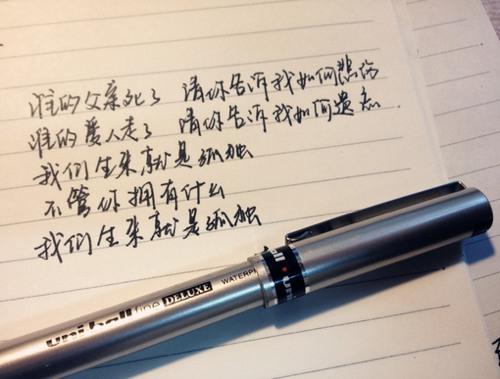 谁的父亲死了 请你告诉我如何悲伤
谁的爱人走了 请你告诉我如何遗忘
我们生来就是孤独
不管你拥有什么
我们生来就是孤独
uni-ball fine DELUXE WATERPR
ball